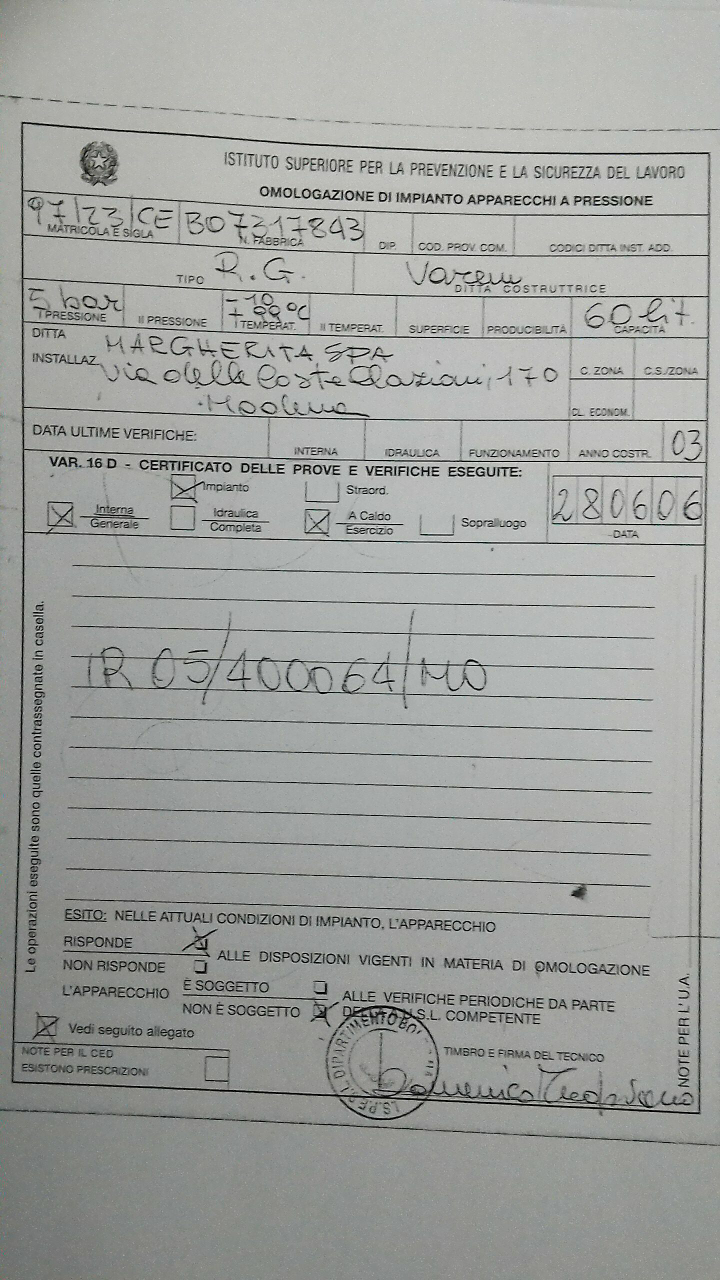 ISTITUTO SUPERIORE PER LA PREVENZIONE E LA SICUREZZA DEL LAVORO
OMOLOGAZIONE DI IMPIANTO APPARECCHI A PRESSIONE
97/23/CE B07317843
MATRICOLA E SIGLA N. FABBRICA DIP. COD. PROV. COM. CODICI DITTA INST. ADD.
R.G. Varem
TIPO DITTA COSTRUTTRICE
5 bar -10 +99°C 60 lit.
I PRESSIONE II PRESSIONE I TEMPERAT. II TEMPERAT. SUPERFICIE PRODUCIBILITÀ CAPACITÀ
DITTA MARGHERITA SPA
INSTALLAZ. Via delle Costellazioni, 170 C. ZONA C.S./ZONA
Modena CL. ECONOM.
DATA ULTIME VERIFICHE: 03
INTERNA IDRAULICA FUNZIONAMENTO ANNO COSTR.
VAR. 16 D - CERTIFICATO DELLE PROVE E VERIFICHE ESEGUITE:
Impianto Straord. 280606
Interna Generale Idraulica Completa A Caldo Esercizio Sopralluogo
DATA
Le operazioni eseguite sono quelle contrassegnate in casella.
IR 05/400064/MO
ESITO: NELLE ATTUALI CONDIZIONI DI IMPIANTO, L'APPARECCHIO
RISPONDE
ALLE DISPOSIZIONI VIGENTI IN MATERIA DI OMOLOGAZIONE
NON RISPONDE
L'APPARECCHIO È SOGGETTO
NON È SOGGETTO
ALLE VERIFICHE PERIODICHE DA PARTE
DELLA U.S.L. COMPETENTE
Vedi seguito allegato
NOTE PER IL CED
ESISTONO PRESCRIZIONI
TIMBRO E FIRMA DEL TECNICO
Domenico
I.S.P.E.S.L. DIPARTIMENTO BO
NOTE PER L'U.A.